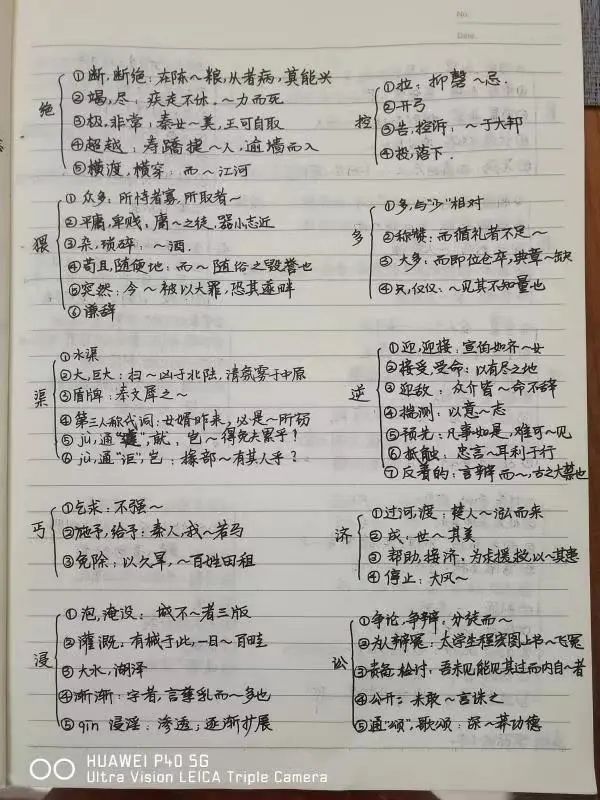 No.
Date.
绝
①断,断绝:在陈~粮,从者病,莫能兴
②竭,尽:疾走不休,~力而死
③极,非常:秦女~美,王可自取
④超越:寿蹻捷~人,逾墙而入
⑤横渡,横穿:而~江河
控
①拉:抑磬~忌.
②开弓
③告,控诉:~于大邦
④投,落下.
猥
①众多:所恃者寡,所取者~
②平庸,卑贱:庸~之徒,器小志近
③杂,琐碎:~酒.
④苟且,随便地:而~随俗之毁誉也
⑤突然:今~被以大罪,恐其遂畔
⑥谦辞
多
①多,与"少"相对
②称赞:而循礼者不足~
③大多:而即位仓卒,典章~缺
④只,仅仅:~见其不知量也
渠
①水渠
②大,巨大:扫~凶于北陆,清氛雾于中原
③盾牌:奉文犀之~
④第三人称代词:女婿昨来,必是~所窃
⑤jù,通"遽",岂~得免夫累乎?
⑥jù,通"讵",岂:掾部~有其人乎?
逆
①迎,迎接:宣伯如齐~女
②接受,受命:以有尽之地
③迎敌:众介皆~命不辞
④揣测:以意~志
⑤预先:凡事如是,难可~见
⑥抵触:忠言~耳利于行
⑦反着的:言辩而~,古之大禁也
丐
①乞求:不强~
②施予,给予:秦人,我~若马
③免除:以久旱,~百姓田租
济
①过河,渡:楚人~泓而来
②成:世~其美
③帮助,接济:为求援,投以~其患
④停止:大风~
浸
①泡,淹没:城不~者三版
②灌溉:有械于此,一日~百畦
③大水,湖泽
④渐渐:字者,言孳乳而~多也
⑤qīn 浸淫:渗透;逐渐扩展
讼
①争论,争辩:分徒而~
②为人辩冤:太学生程宏图上书~飞冤
③责备,检讨:吾未见能见其过而内自~者
④公开:未敢~言诛之
⑤通"颂",歌颂:深~莽功德
HUAWEI P40 5G
Ultra Vision LEICA Triple Camera